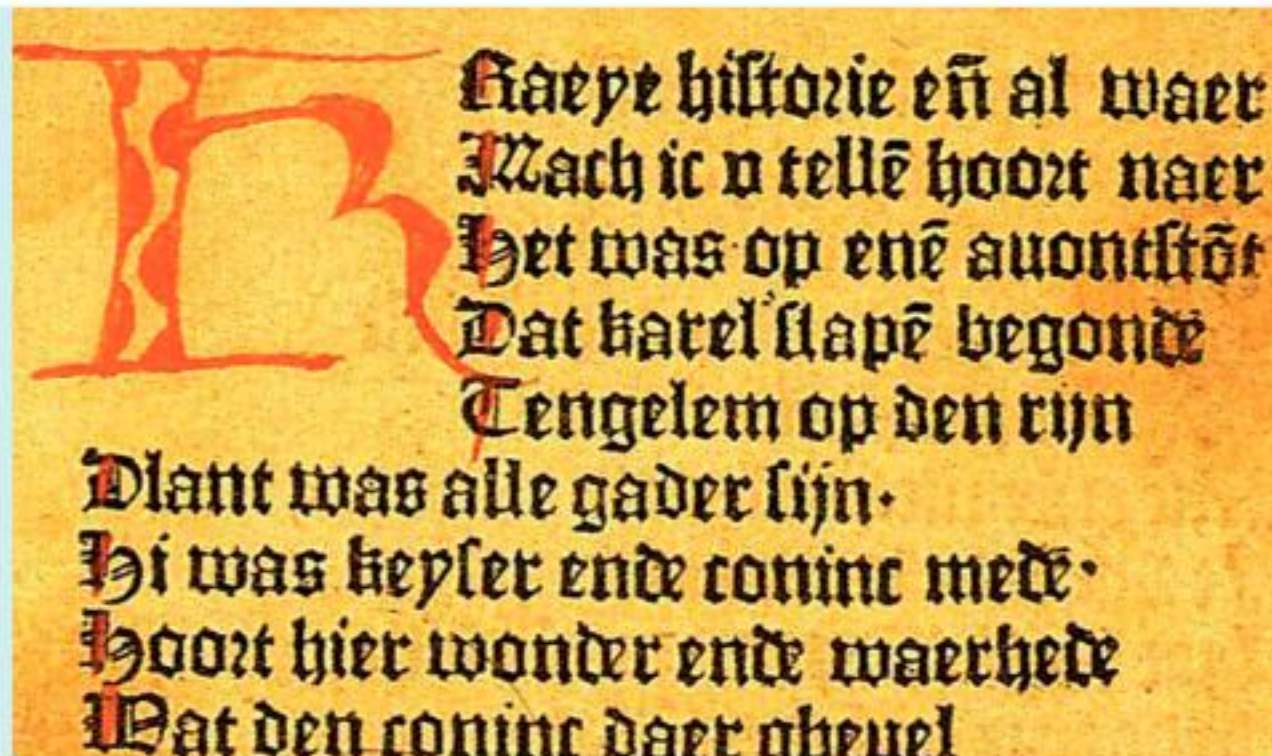 RRaeye hiſtorie en̄ al waer
Mach ic v tellē hoort naer
Het was op enē auontſtōt
Dat karel ſlapē begonde
Tengelem op den rijn
Dlant was alle gader ſijn·
Hi was keyſer ende coninc mede·
Hoort hier wonder ende waerhede
Wat den coninc daer gheuel